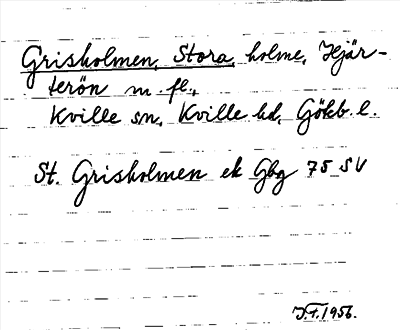 Grisholmen, Stora, holme, Hjär-
terön m. fl.,
Kville sn, Kville hd, Gökb. l.
St. Grisholmen ek Gbg 75 SV
J.T. 1956.